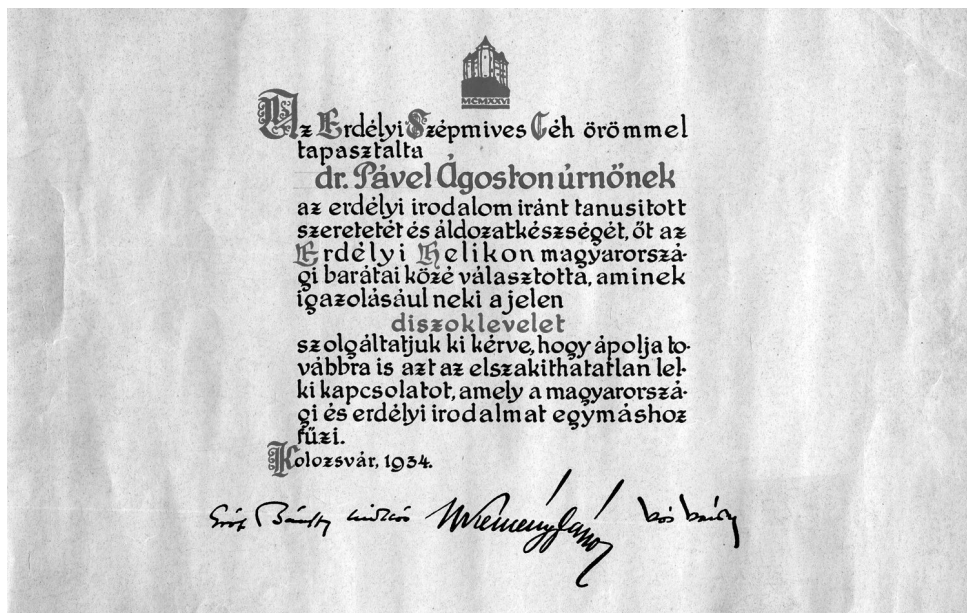 MCMXXVI
Az Erdélyi Szépmives Céh örömmel
tapasztalta
dr. Pável Ágoston úrnőnek
az erdélyi irodalom iránt tanusitott
szeretetét és áldozatkészségét, őt az
Erdélyi Helikon magyarorszá-
gi barátai közé választotta, aminek
igazolásául neki a jelen
diszoklevelet
szolgáltatjuk ki kérve, hogy ápolja to-
vábbra is azt az elszakithatatlan lel-
ki kapcsolatot, amely a magyarorszá-
gi és erdélyi irodalmat egymáshoz
fűzi.
Kolozsvár, 1934.
Gróf Bánffy Miklós Kemény János Kós Károly